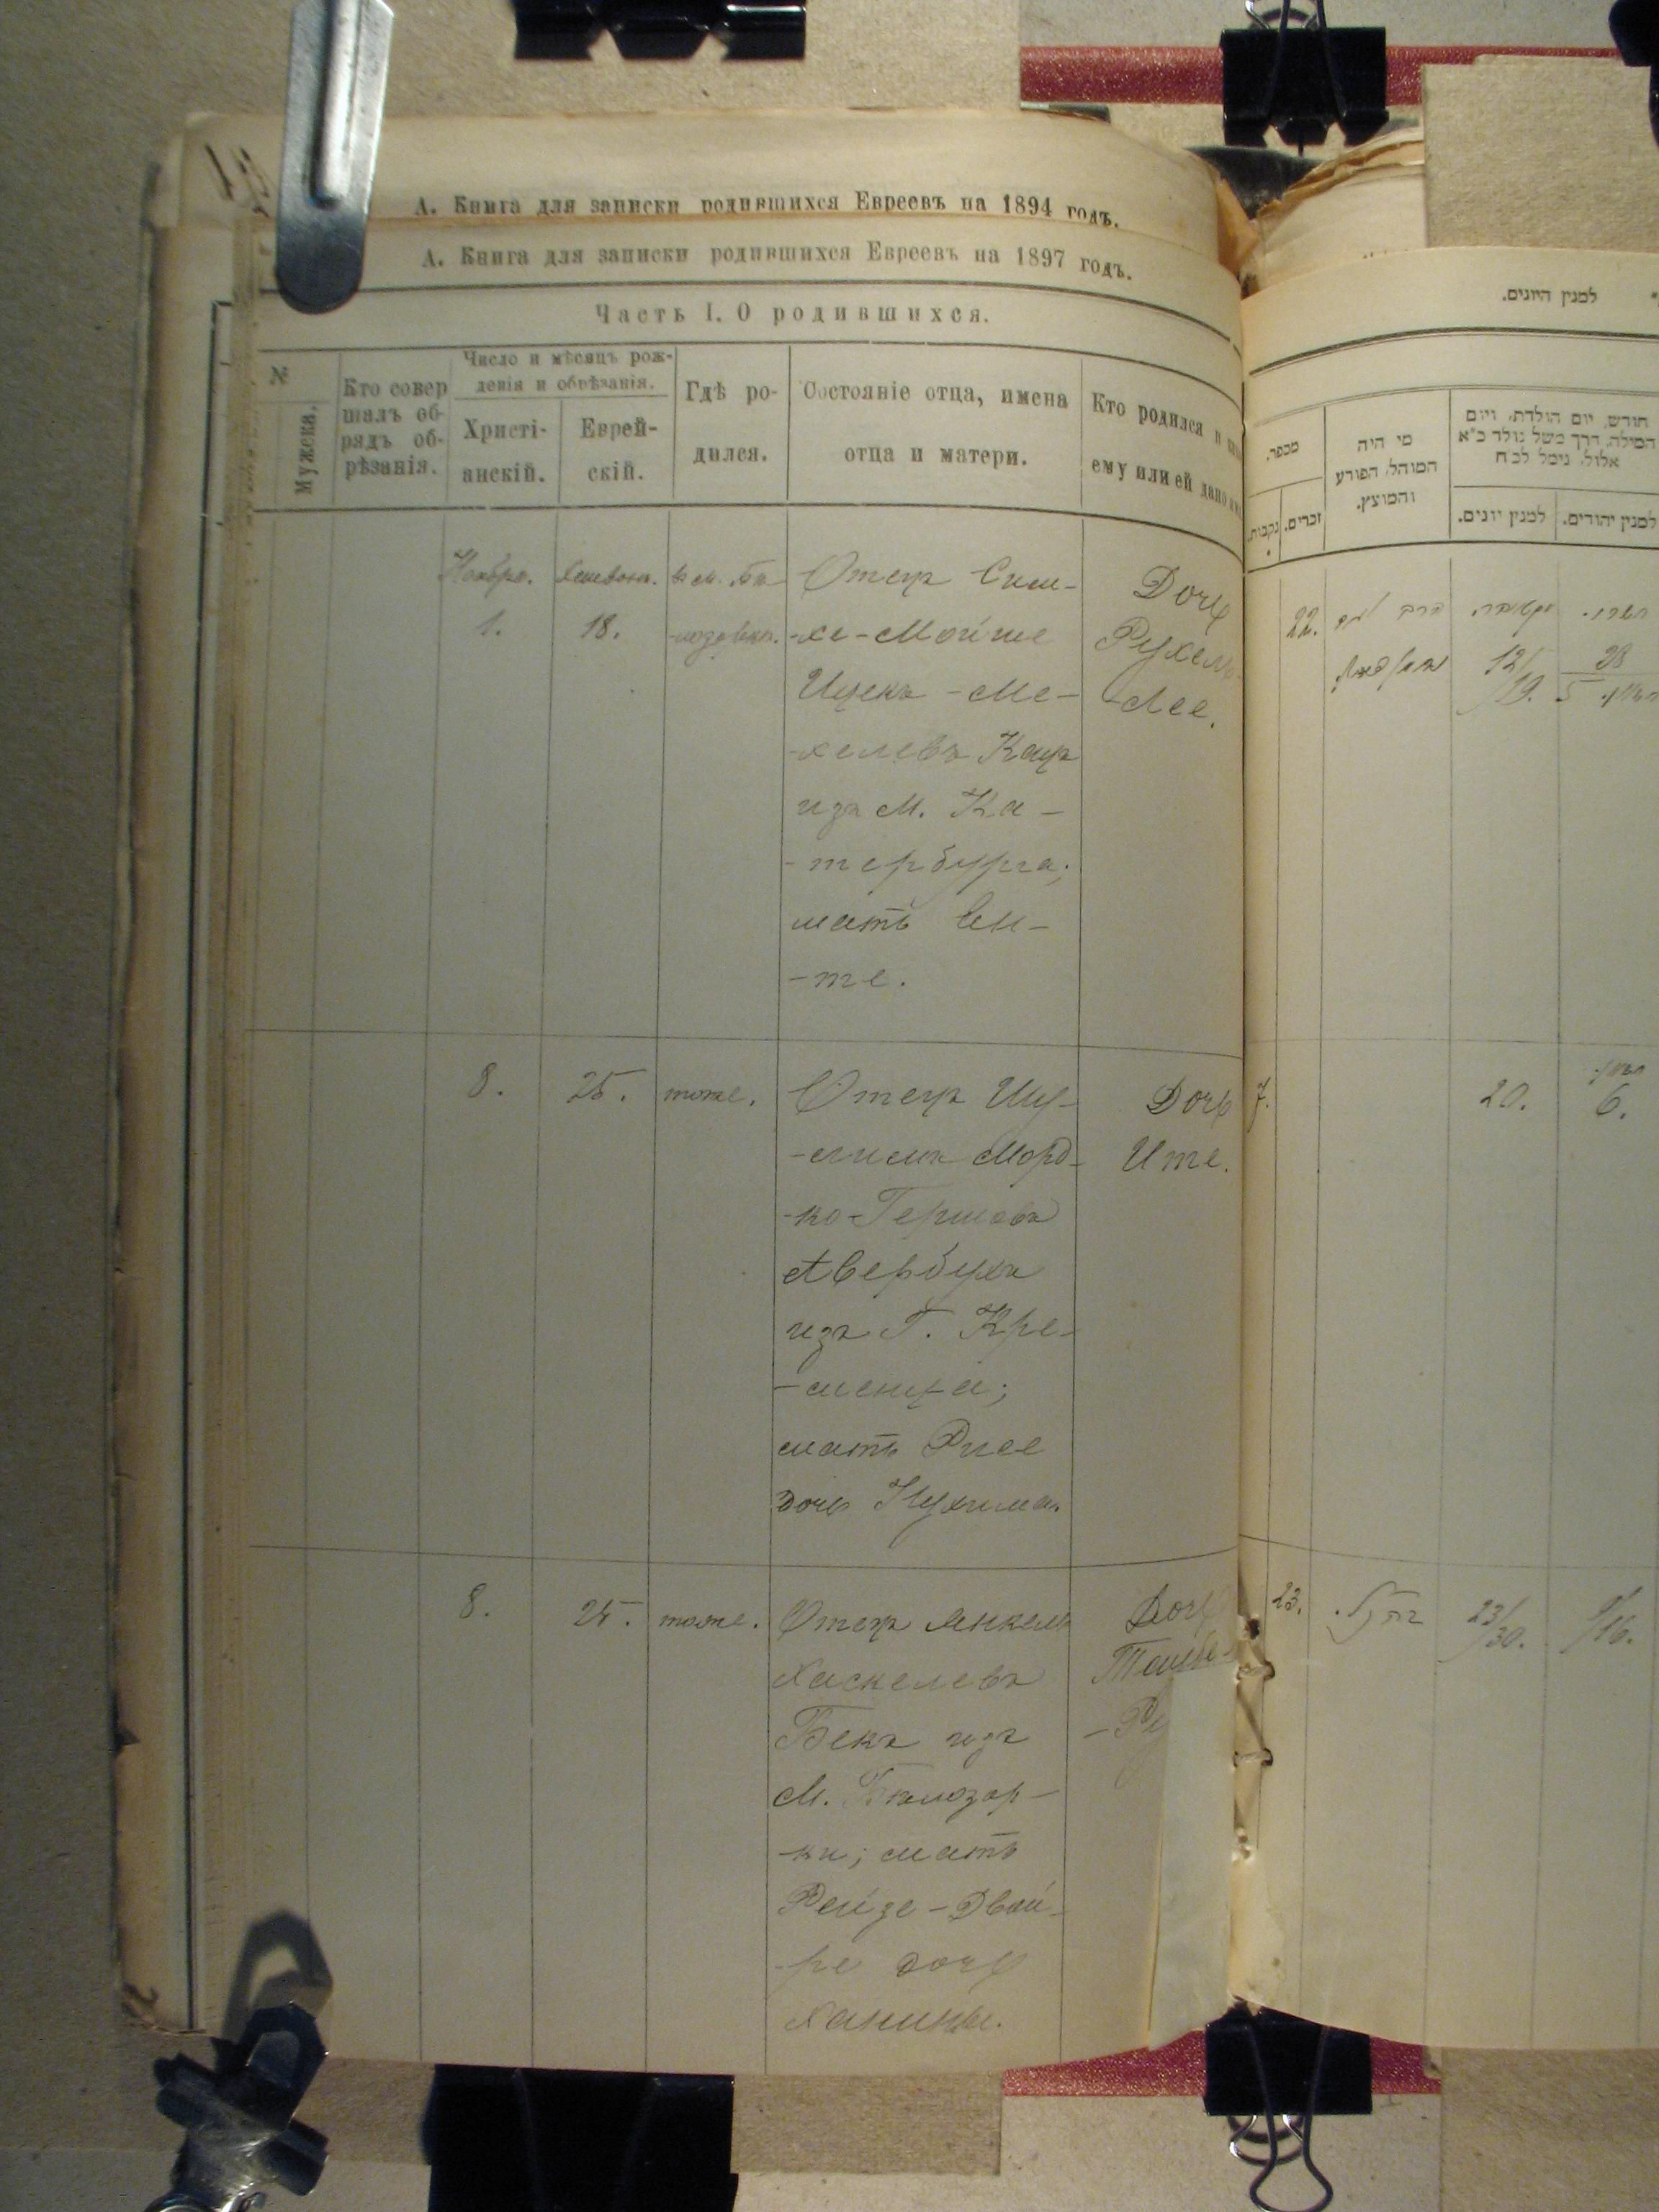 А. Книга для записки родившихся Евреевъ на 1894 годъ.
А. Книга для записки родившихся Евреевъ на 1897 годъ.
Часть I. О родившихся.
№
Мужска.
Кто совер
шалъ об-
рядъ об-
рѣзанія.
Число и мѣсяцъ рож-
денія и обрѣзанія.
Христі-
анскій.
Еврей-
скій.
Гдѣ ро-
дился.
Состояніе отца, имена
отца и матери.
Кто родился и
ему или ей дано
Ноября.
1.
Хешвона.
18.
въ м. Бѣ
-лозоркѣ.
Отецъ Сим-
-хе-Мойше
Ицекъ-Ме-
-хелевъ Кацъ
изъ М. Ка-
-тербурга;
мать Ен-
-те.
Дочь
Рухель
-Лее.
8.
25.
тоже.
Отецъ Шу-
Морд-
-ко-Гершовъ
Авербухъ
изъ Г. Кре-
-менца;
мать Рисе
дочь Нухима.
Дочь
Ите.
8.
25.
тоже.
Отецъ Янкель
Хаскелевъ
Бекъ изъ
М. Бѣлозор-
-ки; мать
Рейзе-Двой-
-ре дочь
Ханины.
Дочь
Таубе-
-Ру
למנין היונים.
מספר.
נקבות.
זכרים.
מי היה
המוהל, הפורע
והמוצץ.
חודש, יום הולדת, ויום
המילה, דרך משל נולד כ"א
אלול, נימל לכ"ח
למנין יונים.
למנין יהודים.
22.
12/
19.
28
5
7.
20.
6.
23.
23/
30.
9/
16.